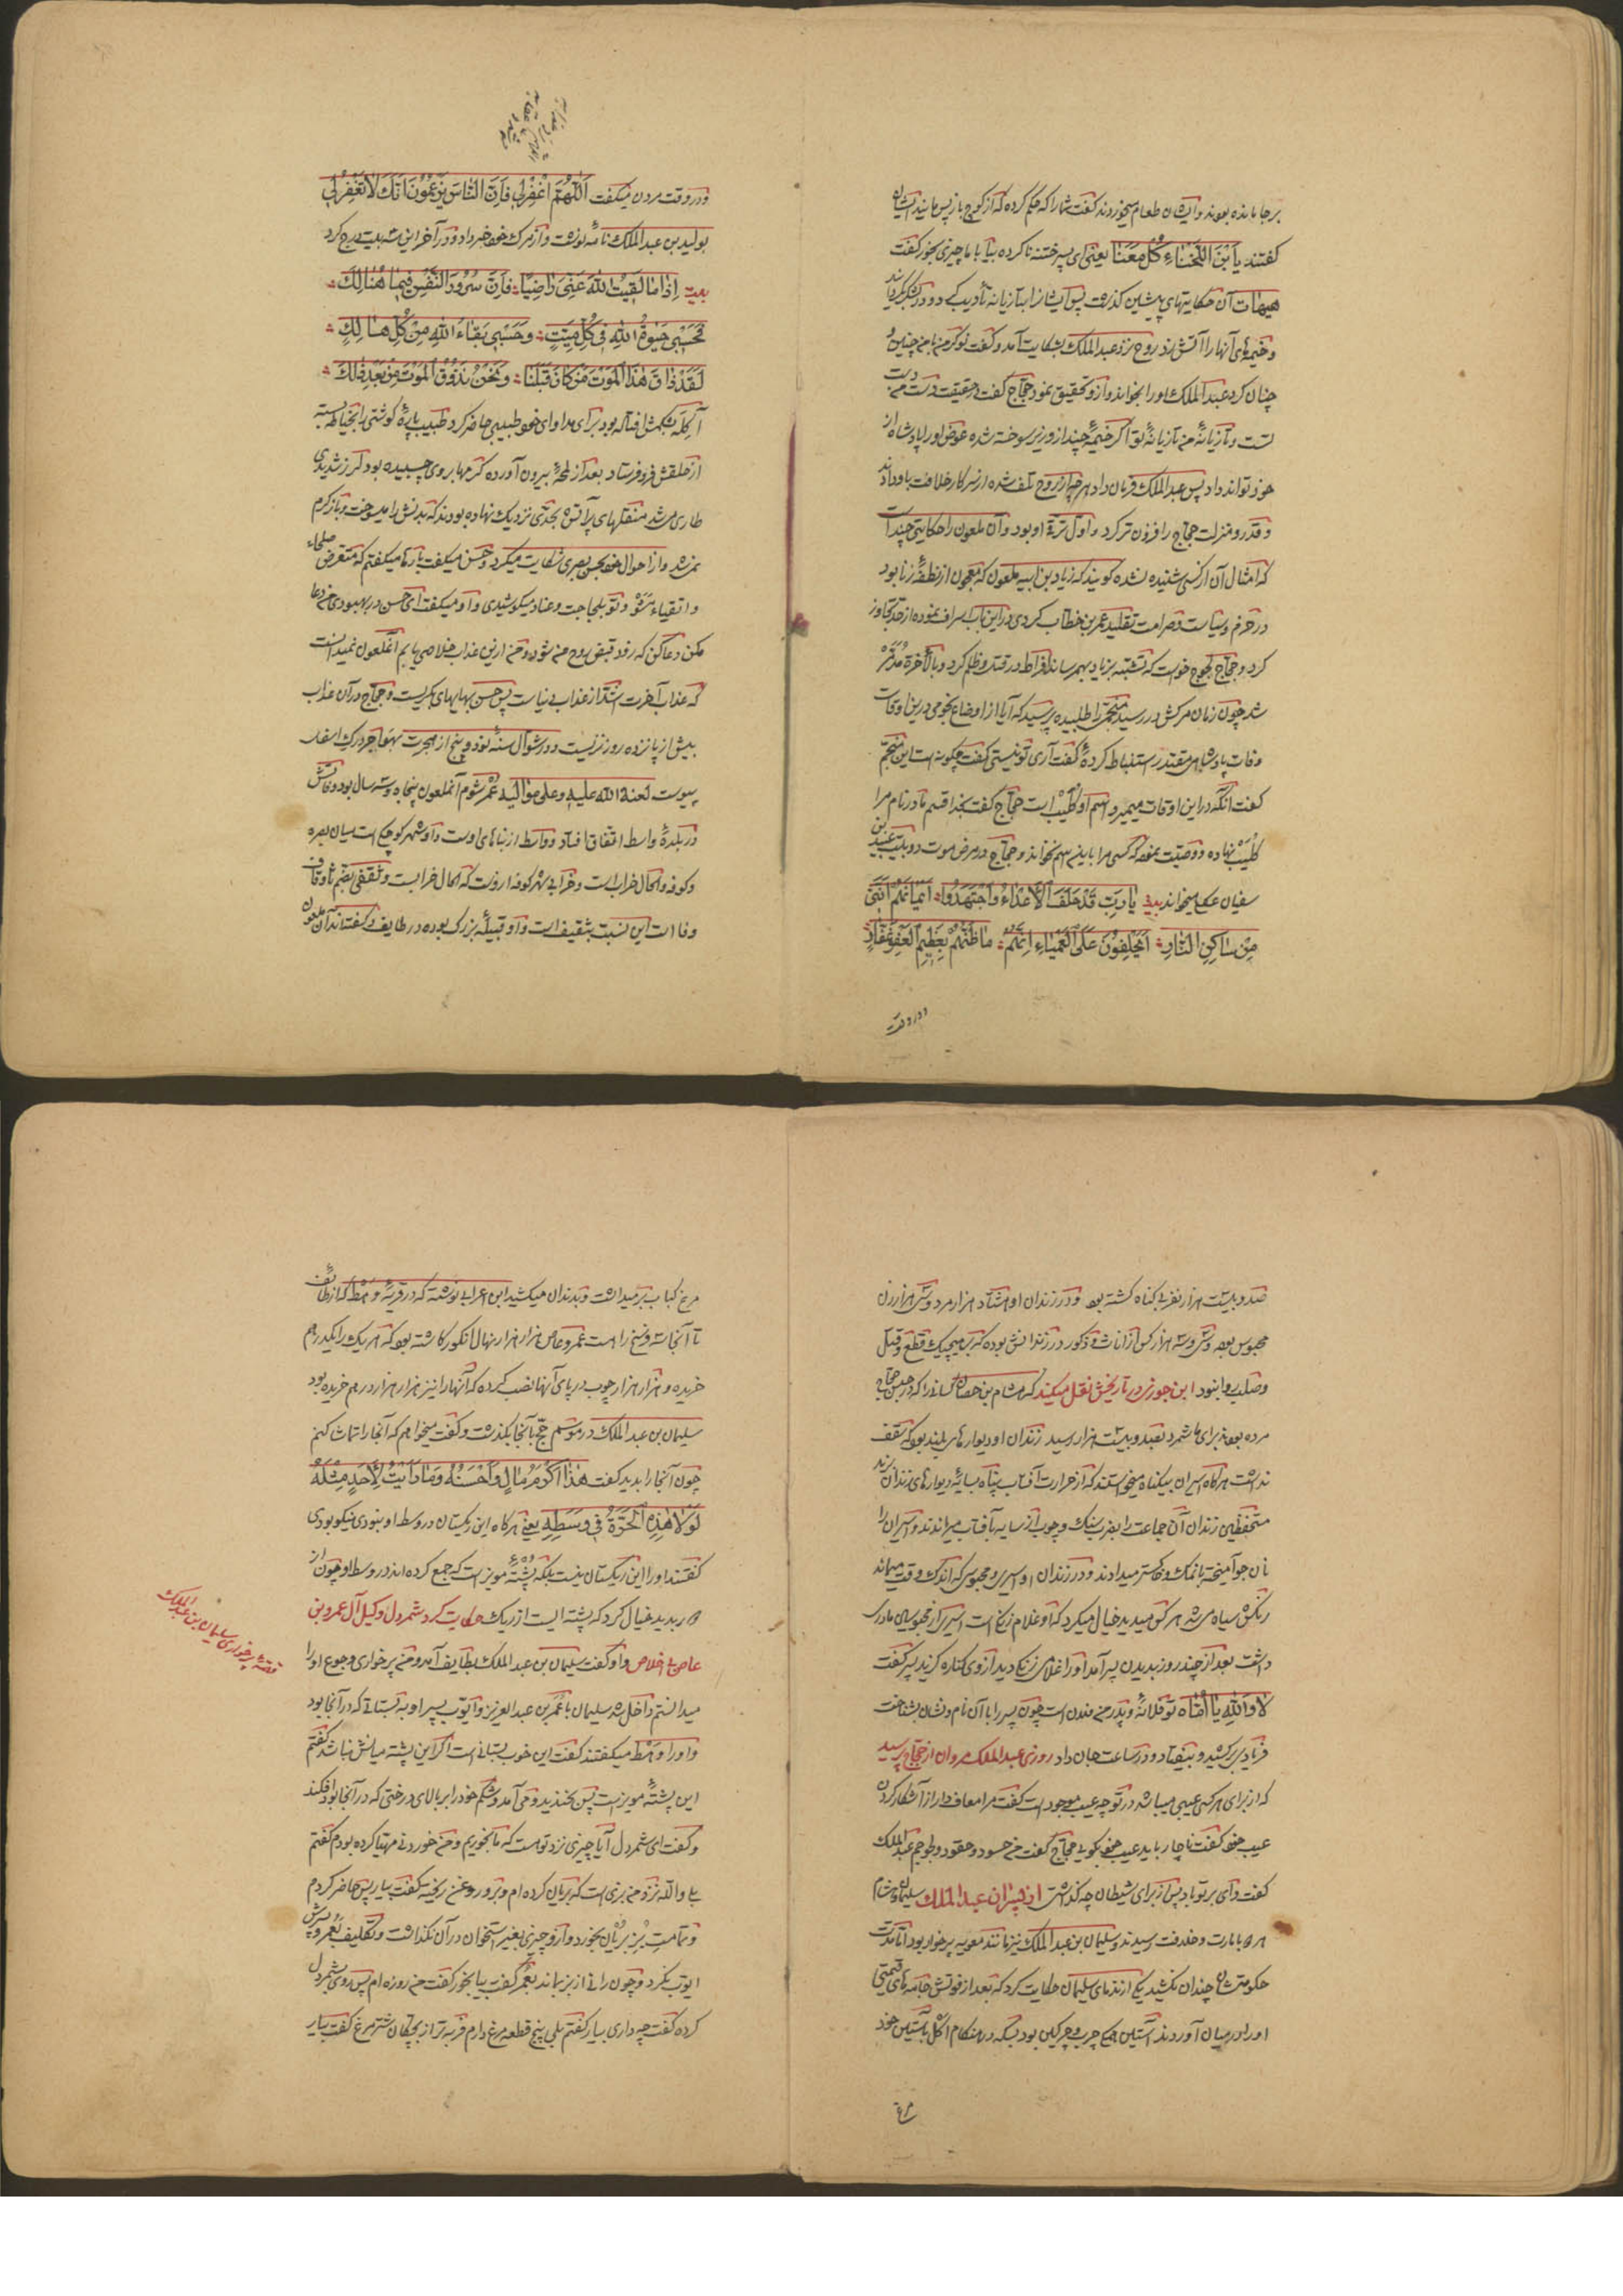 برجا مانده بودند و ایشان طعام میخوردند گفت شما را که حکم کرده که از کوچ باز پس مانید ایشان
گفتند یا بْنَ اللَّخْناءِ کُلْ مَعَنا یعنی ای پسر ختنه ناکرده بیا با ما چیزی بخور گفت
هیهات آن حکایتهای پیشین گذشت پس ایشانرا بتازیانه تادیب کرده و در لشکر گرداند
و خیمهای آنها را آتش زد روح نزد عبدالملک بشکایت آمد و گفت نوکر من با من چنین و
چنان کرد عبدالملک او را بخواند و ازو تحقیق نمود حجاج گفت در حقیقت دست من دست
تست و تازیانهٔ من تازیانهٔ تو اگر خیمهٔ چند از وزیر سوخته شده عوض او را پادشاه از
خود تواند داد پس عبدالملک فرمان داد هرچه از روح تلف شده از سرکار خلافت باو دادند
و قدر و منزلت حجاج را افزون تر کرد و اول ترقی او بود و آن ملعون را حکایتی چند است
که امثال آن از کسی شنیده نشده گویند که زیاد بن ابیه ملعون که معجون از نطفهٔ زنا بود
در حزم و سیاست و صرامت تقلید عمر بن خطاب کردی و در این باب اسراف نموده از حد تجاوز
کرد و حجاج لجوج خواست که تشبه بزیاد بهم رساند افراط در قتل و ظلم کرد و بالآخره مُدَمَّر
شد چون زمان مرکش در رسید منجمی را طلبیده پرسید که آیا از اوضاع نجومی درین اوقات
وفات پادشاهی مقتدر استنباط کردهٔ گفت آری تو نیستی گفت چگونه است این منجم
گفت آنکه در این اوقات میمیرد اسم او کُلَیْب است حجاج گفت بخدا قسم مادر نام مرا
کُلَیْب نهاده و وصیت نموده که کسی مرا باین اسم نخواند و حجاج در مرض موت دو بیت عبید بن
سفیان عکلی میخواند بیت یا رَبِّ قَدْ حَلَفَ الْأَعْداءُ وَاجْتَهَدُوا اَیْمانَهُمْ اَنَّنی
مِنْ ساکِنِی النّارِ اَیَحْلِفُونَ عَلَی الْعَمْیاءِ اِنَّهُمْ ما ظَنُّهُمْ بِعَظیمِ الْعَفْوِ غَفّارِ
و در وقت
و در وقت مردن میگفت اَللّهُمَّ اغْفِرْلی فَاِنَّ النّاسَ یَزْعُمُونَ اَنَّکَ لا تَغْفِرْلی
بولید بن عبدالملک نامهٔ نوشت و از مرک خود خبر داد و در آخر این سه بیت درج کرد
بیت اِذا ما لَقیتُ اللهَ عَنّی راضِیًا فَاِنَّ سُرُورَ النَّفْسِ فیما هُنالِکَ
فَحَسْبی حَیوةُ اللهِ فی کُلِّ مَیِّتٍ وَحَسْبی بَقاءُ اللهِ مِنْ کُلِّ هالِکٍ
لَقَدْ ذاقَ هذَا الْمَوْتَ مَنْ کانَ قَبْلَنا وَنَحْنُ نَذُوقُ الْمَوْتَ مِنْ بَعْدِ ذلِکَ
آکله بشکمش افتاده بود برای مداوای خود طبیبی حاضر کرد طبیب پارهٔ گوشتی را بخیاطه بسته
از حلقش فرو فرستاد بعد از لمحهٔ بیرون آورده کرمها بروی چسبیده بود لرز شدیدی
طاری میشد منقلهای پرآتش بحدی نزدیک نهاده بودند که بدنش را میسوخت و باز گرم
نمیشد و از احوال خود بحسن بصری شکایت میکرد و حسن میگفت بارها میگفتم که متعرض صلحاء
و اتقیاء مشو و تو بلجاجت و عناد میکوشیدی و او میگفت ای حسن در بهبودی من دعا
مکن دعا کن که زود قبض روح من شود و من ازین عذاب خلاصی یابم آنملعون نمیدانست
که عذاب آخرت اشد از عذاب دنیاست پس حسن بهایهای بگریست و حجاج در آن عذاب
بیش از پانزده روز نزیست و در شوال سنهٔ نود و پنج از هجرت بهواجر درک اسفل
پیوست لعنة الله علیه و علی موالیه عمر شوم آنملعون پنجاه و سه سال بود وفاتش
در بلدهٔ واسط اتفاق افتاد و واسط از بناهای اوست و او شهر کوچکی است میان بصره
و کوفه و الحال خرابست و خرابی شهر کوفه ازوست که الحال خرابست و ثقفی بفتح ثا و قاف
و فا است این نسبت بثقیف است و او قبیلهٔ بزرک بوده در طایف و گفته‌اند آن ملعون
صد و بیست هزار نفر بی گناه کشته بود و در زندان او هشتاد هزار مرد و سی هزار زن
محبوس بود و سی و سه هزار کس از اناث و ذکور در زندانش بوده که بر هیچیک قطع و قتل
و صلب روا نبود ابن جوزی در تاریخش نقل میکند که هشام بن حسان کسانرا که در حبس حجاج
مرده بودند برای ما شمرد بصد و بیست هزار رسید زندان او دیوارهای بلند بود که سقف
نداشت هرگاه اسیران بیگناه میخواستند که از حرارت آفتاب پناه بسایهٔ دیوارهای زندان برند
مستحفظین زندان آن جماعت را بضرب سنک و چوب از سایه بآفتاب میراندند و اسیران را
نان جو آمیخته بانمک و خاکستر میدادند و در زندان او اسیری و محبوسی که اندک وقت میماند
رنکش سیاه میشد هر کس میدید خیال میکرد که او غلام زنگی است اسیری را از محبوسان مادری
داشت بعد از چند روز بدیدن پسر آمد او را غلامی زنگی دید از وی کناره گزید پسر گفت
لا وَاللهِ یا اُمّاه تو فلانهٔ و پدر من فلان است چون پسر را با آن نام و نشان بشناخت
فریادی برکشید و بیفتاد و در ساعت جان داد روزی عبدالملک مروان از حجاج پرسید
که از برای هر کسی عیبی میباشد در تو چه عیب موجود است گفت مرا معاف دار از آشکار کردن
عیب خود گفت ناچار باید عیب خود بگوئی حجاج گفت من حسود و حقود و لجوجم عبدالملک
گفت وای بر تو باد پس از برای شیطان چه گذاشتی از پسران عبدالملک سلیمان و هشام
هر دو بامارت و خلافت رسیدند و سلیمان بن عبدالملک نیز مانند معویه پرخوار بود اما مدت
حکومتشان چندان نکشید یکی از ندمای سلیمان حکایت کرد که بعد از فوتش جامه های قیمتی
او را در میان آوردند آستین همه چرب و چرکین بود بسکه در هنگام اکل بآستین خود
مرغ
مرغ کباب برمیداشت و بدندان میکشید ابن اعرابی نوشته که در قریهٔ وَهْط که از طائف
تا آنجا سه فرسخ راهست عمروعاص هزار هزار نهال انگور کاشته بود که هر یک را بیکدرهم
خریده و هزار هزار چوب در پای آنها نصب کرده که آنها را نیز هزار هزار درهم خریده بود
سلیمان بن عبدالملک در موسم حج بآنجا بگذشت و گفت میخواهم که آنجا را تماشا کنم
چون آنجا را بدید گفت هذا اَکْرَمُ مالٍ وَاَحْسَنُهُ وَما رَاَیْتُ لِاَحَدٍ مِثْلَهُ
لَوْلا هذِهِ الْحَرَّةُ فی وَسَطِهِ یعنی هرگاه این ریکستان در وسط او نبودی نیکو بودی
گفتند او را این ریکستان نیست بلکه پُشتهٔ مویز است که جمع کرده‌اند در وسط او چون از
دور بدید خیال کرد که پشته ایست از ریک حکایت کرد شمردل وکیل آل عمرو بن
عاص اخلاص و او گفت سلیمان بن عبدالملک بطایف آمد و من پرخواری و جوع او را
میدانستم داخل شد سلیمان با عمر بن عبدالعزیز و ایوب پسر او به بستانی که در آنجا بود
و او را وَهْط میگفتند گفت این خوب بستانی است اگر این پشته میانش نباشد گفتم
این پشتهٔ مویزست پس بخندید و می آمد و شکم خود را بر بالای درختی که در آنجا بود افکند
و گفت ای شمردل آیا چیزی نزد تو هست که ما بخوریم و من خوردنی مهیا کرده بودم گفتم
بلی والله نزد من بزی است که بریان کرده‌ام و بر و روغن ریخته گفت بیار پس حاضر کردم
و تمامت بُزِ بریان بخورد و ازو چیزی بغیر استخوان در آن نگذاشت و تکلیف بعمر و پسرش
ایوب نکرد و چون رانی از بز بماند بعمر گفت بیا بخور گفت من روزه ام پس روی بشمردل
کرده گفت چه داری بیار گفتم بلی پنج قطعه مرغ دارم فربه تر از بچگان شترمرغ گفت بیار
قصهٔ پرخواری سلیمان بن عبدالملک